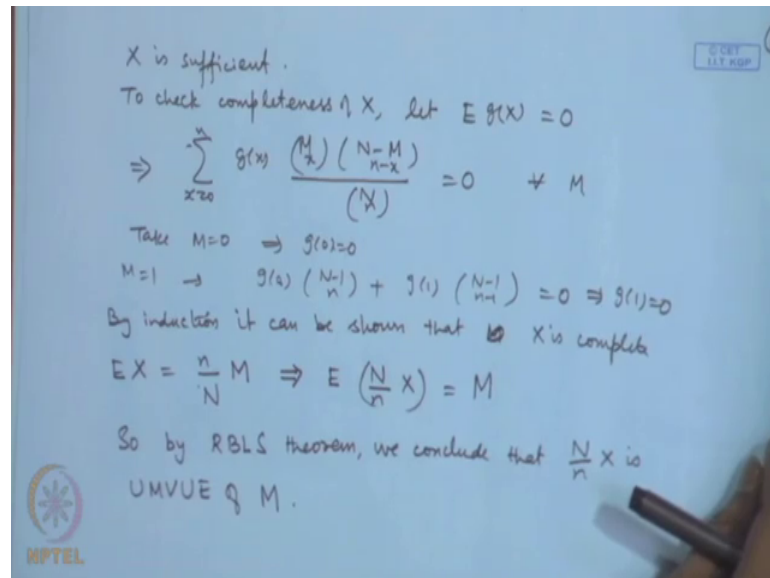 X is sufficient.
To check completeness of X, let E g(X) = 0
⇒ ∑_{x=0}^{n} g(x) \frac{\binom{M}{x} \binom{N-M}{n-x}}{\binom{N}{n}} = 0 ∀ M
Take M=0 ⇒ g(0)=0
M=1 → g(0) \binom{N-1}{n} + g(1) \binom{N-1}{n-1} = 0 ⇒ g(1)=0
By induction it can be shown that X is complete
EX = \frac{n}{N} M ⇒ E (\frac{N}{n} X) = M
So by RBLS theorem, we conclude that \frac{N}{n} X is
UMVUE of M.
© CET
I.I.T KGP
NPTEL